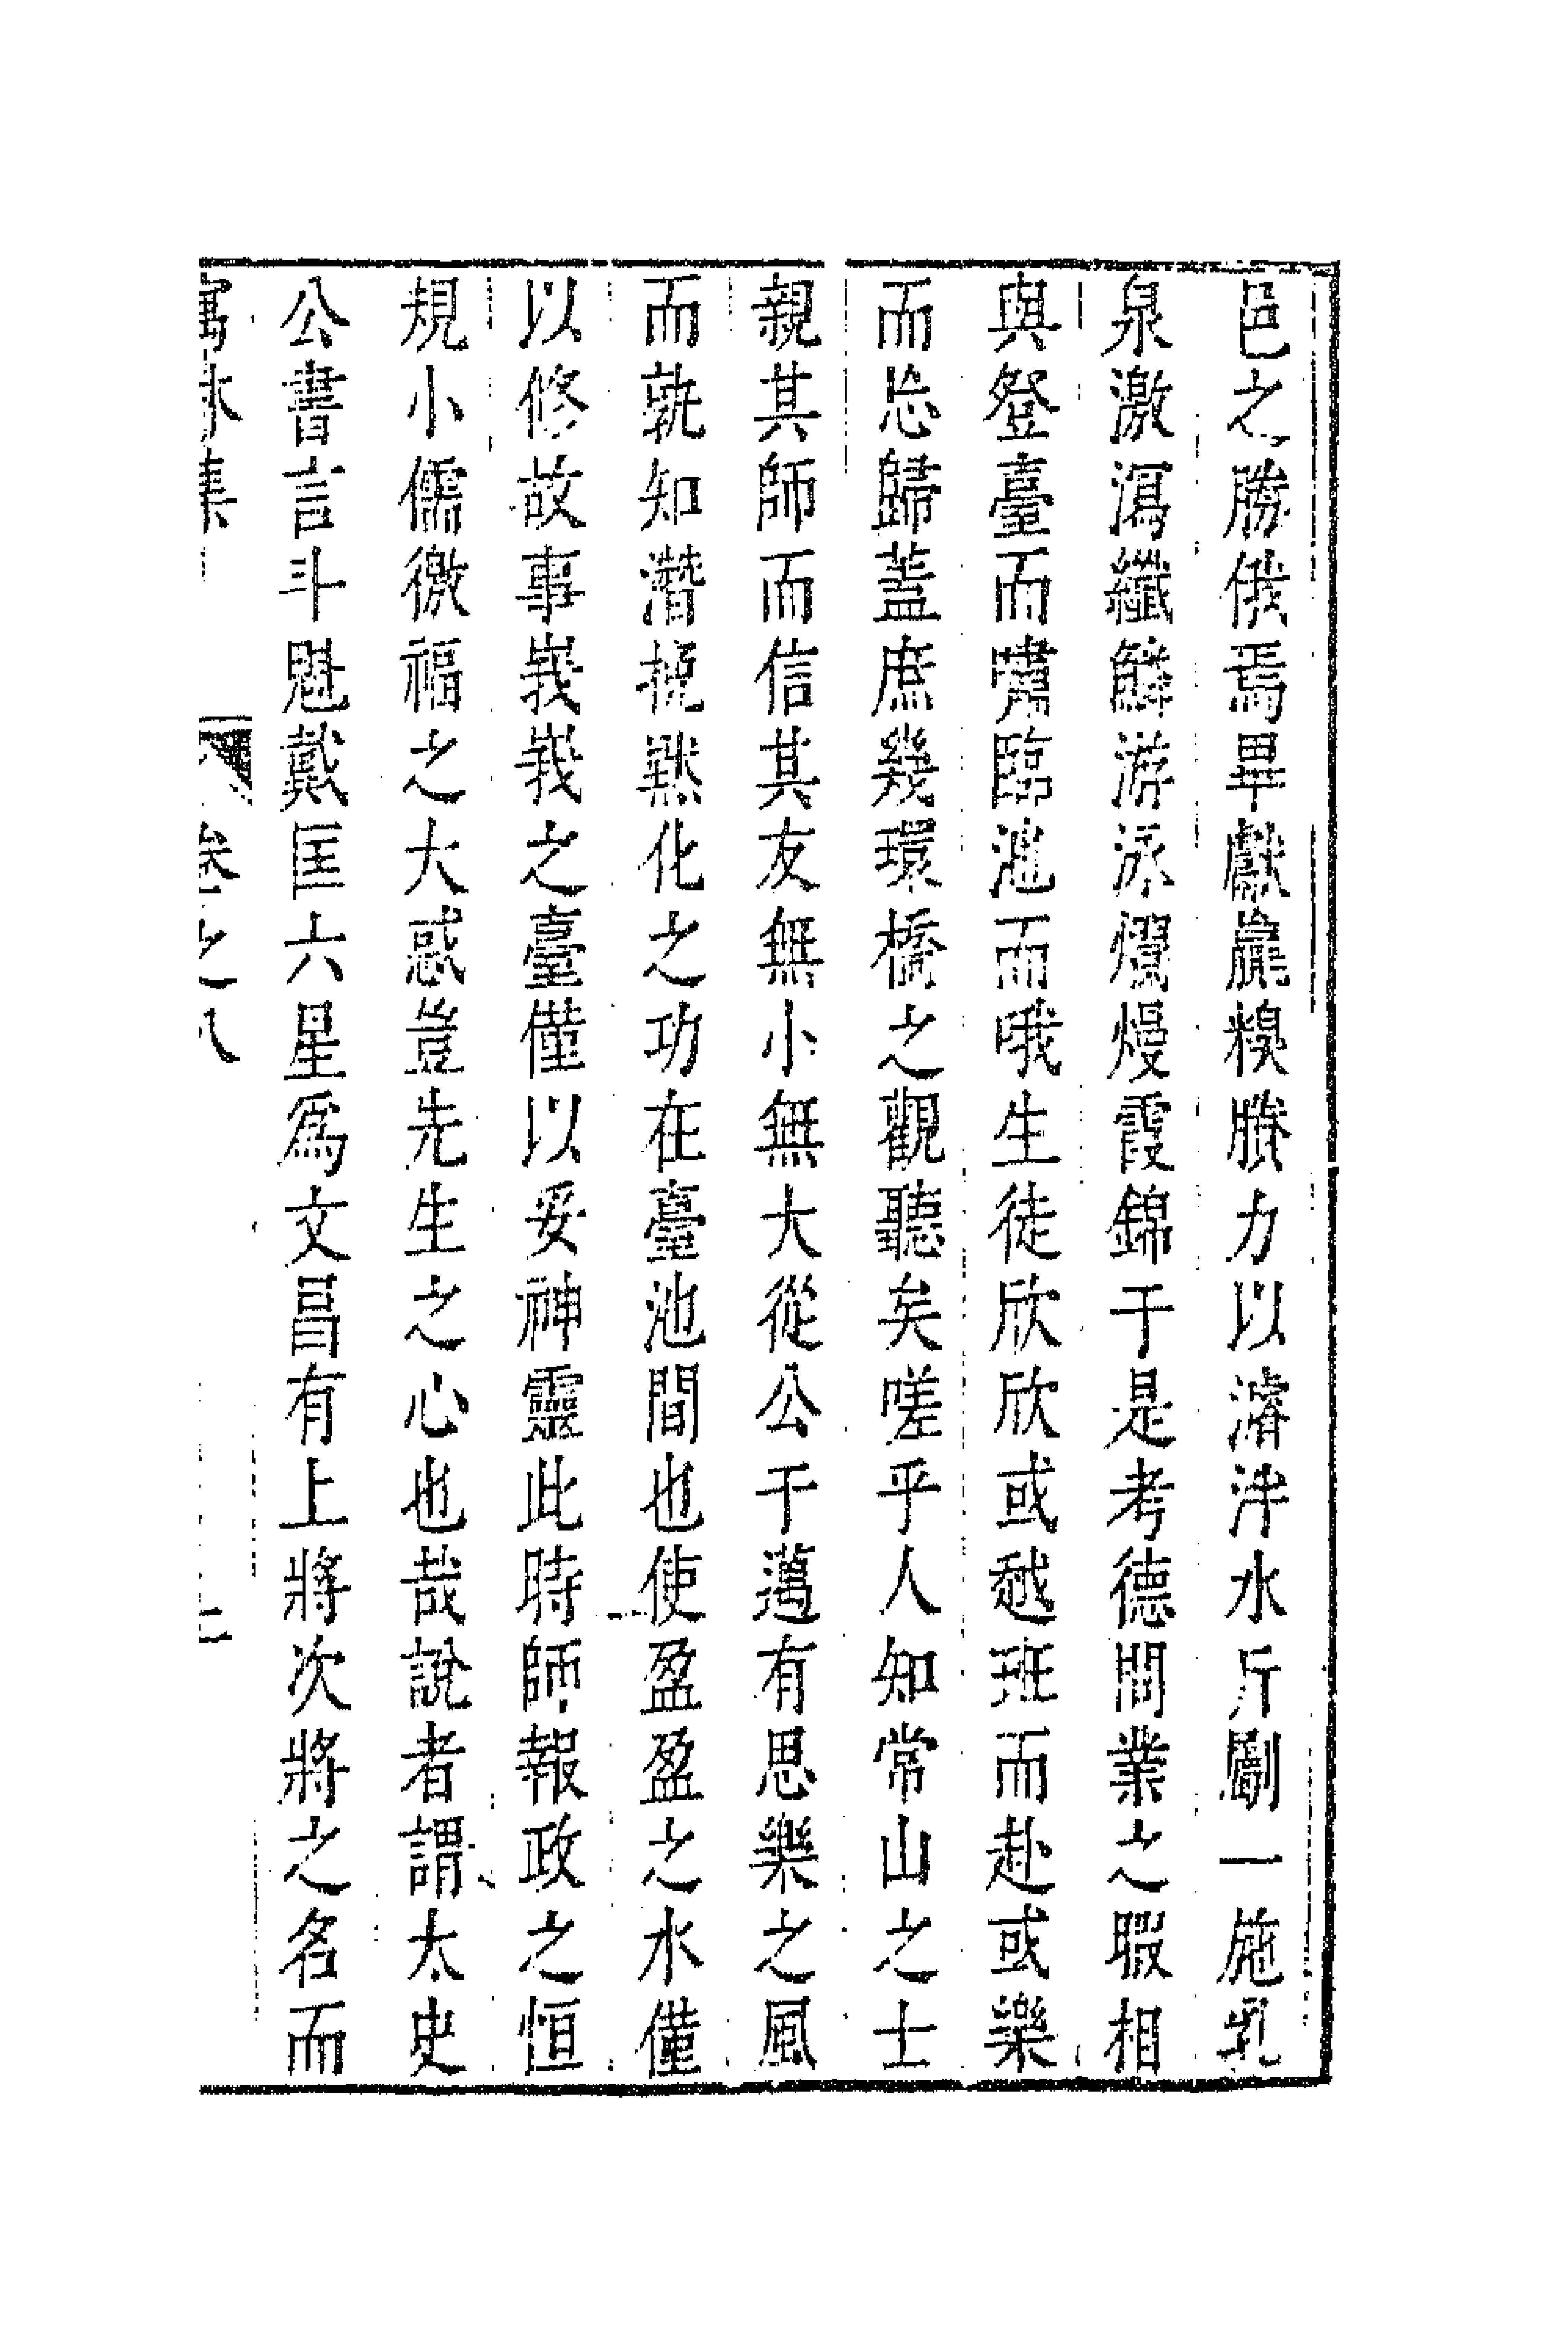 邑之勝俄焉畢獻羸糗賸力以濬泮水斤劚一施乳
泉激㵼纖鱗游泳爛熳霞錦于是考德問業之暇相
與登臺而嘯臨池而哦生徒欣欣或越班而赴或樂
而忘歸蓋庶幾環橋之觀聽矣嗟乎人知常山之士
親其師而信其友無小無大從公于邁有思樂之風
而孰知潛挽默化之功在臺池間也使盈盈之水僅
以修故事峩峩之臺僅以妥神靈此時師報政之恒
規小儒徼福之大惑豈先生之心也哉說者謂太史
公書言斗魁戴匡六星爲文昌有上將次將之名而
寓林集 卷之八